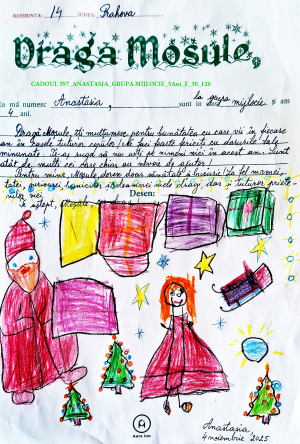 REFERINTA: 14 JUDET: Prahova
Dragă Moșule,
CADOUL 597_ANASTASIA_GRUPA MIJLOCIE_5Ani_F_30_120
Eu mă numesc Anastasia, sunt în la grupa mijlocie și am
4 ani.
Dragă Moșule, îți mulțumesc pentru bunătatea cu care vii în fiecare
an în casele tuturor copiilor! Ne faci foarte fericiți cu darurile tale
minunate. Te-aș ruga să nu uiți de nimeni nici în acest an. Sunt
atât de mulți cei care chiar au nevoie de ajutor!
Pentru mine, Moșule, doresc doar sănătate și bucurie! La fel mamei,
tatei, surioarei, bunicilor, și doamnei mele dragi, dar și tuturor priete-
nilor mei.
Te aștept, Moșule
Desen:
Aura Ion
Anastasia
4 noiembrie 2025